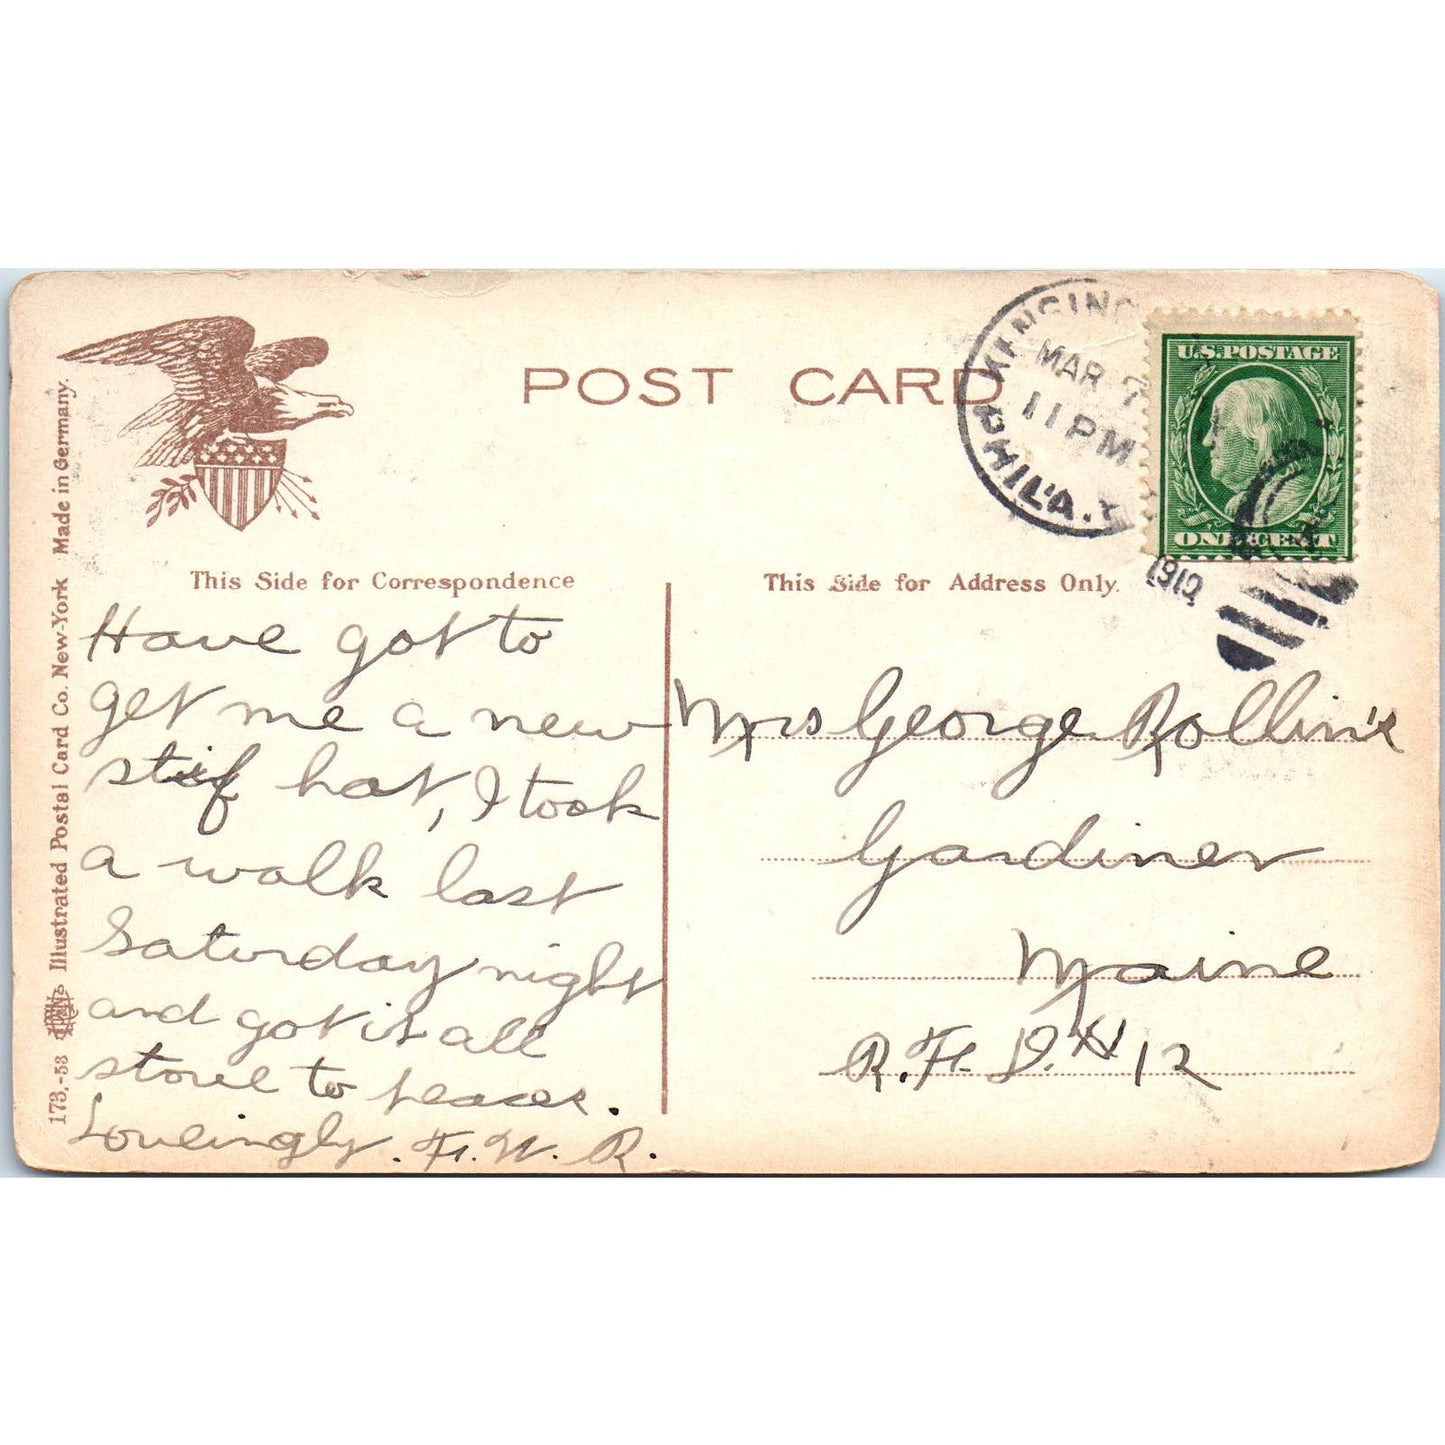 POST CARD
KENSINGTO
MAR 7
11 PM
PHIL'A.
1910
U.S.POSTAGE
ONE CENT
This Side for Correspondence
This Side for Address Only.
Have got to
get me a new
stif hat, I took
a walk last
Saturday night
and got it all
stove to peaces.
Loveingly. F. W. R.
Mrs George Rollins
Gardiner
Maine
R. F. D. # 12
173.-53 Illustrated Postal Card Co. New-York Made in Germany.